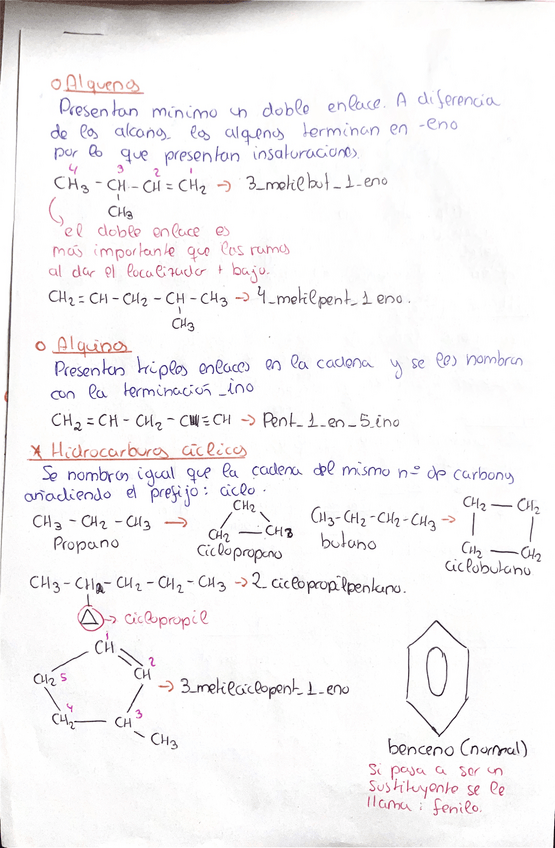 o Alquenos
Presentan mínimo un doble enlace. A diferencia
de los alcanos los alquenos terminan en -eno
por lo que presentan insaturaciones.
4 3 2 1
CH3 - CH - CH = CH2 → 3_metilbut_1_eno
CH3
el doble enlace es
más importante que los ramas
al dar el localizador + bajo.
CH2 = CH - CH2 - CH - CH3 → 4_metilpent_1 eno.
CH3
o Alquinos
Presentan triples enlaces en la cadena y se les nombran
con la terminación _ino
CH2 = CH - CH2 - C ≡ CH → Pent_1_en_5_ino
* Hidrocarburos cíclicos
Se nombran igual que la cadena del mismo nº de carbonos
añadiendo el prefijo: ciclo.
CH3 - CH2 - CH3 → CH2 CH2 — CH2 CH3-CH2-CH2-CH3 → CH2 — CH2
Propano Ciclopropano butano CH2 — CH2
ciclobutano
CH3 - CH2 - CH2 - CH2 - CH3 → 2_ciclopropilpentano.
△ → ciclopropil
CH 1
CH2 5 CH 2 → 3_metilciclopent_1_eno
CH2 4 — CH 3
CH3
benceno (normal)
Si pasa a ser un
sustituyente se le
llama: fenilo.